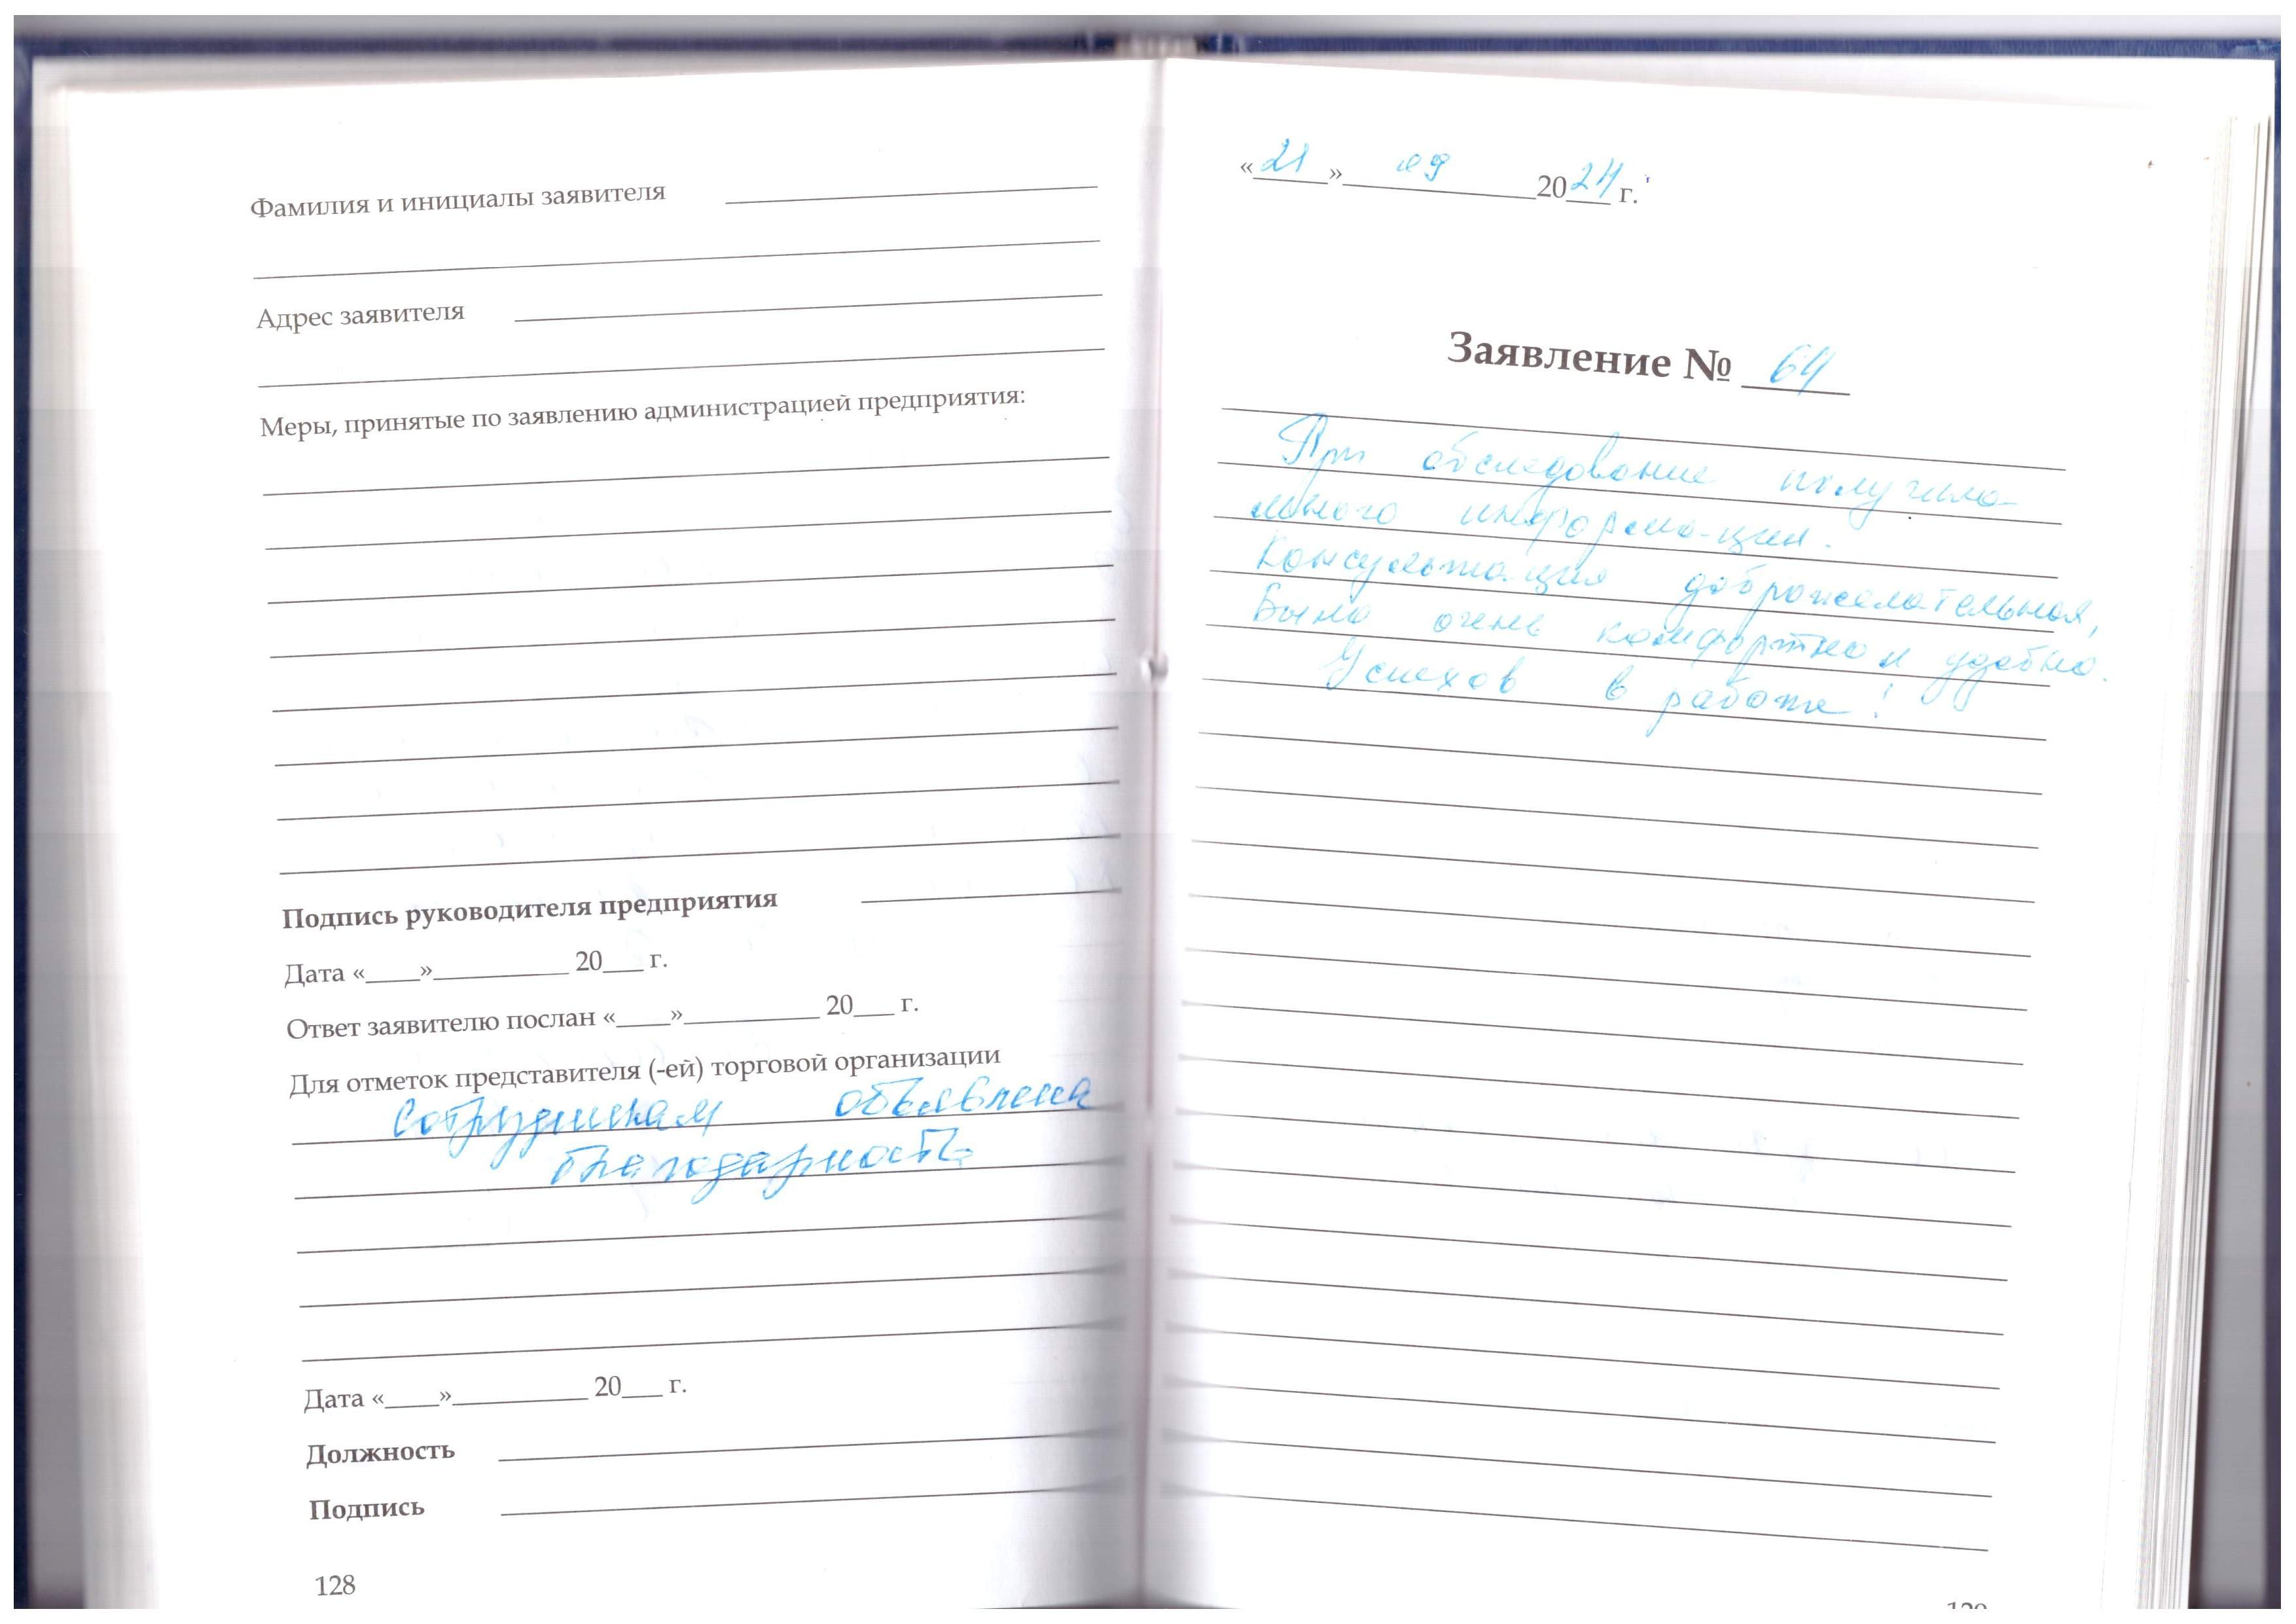 Фамилия и инициалы заявителя
Адрес заявителя
Меры, принятые по заявлению администрацией предприятия:
Подпись руководителя предприятия
Дата «____»__________ 20___ г.
Ответ заявителю послан «____»__________ 20___ г.
Для отметок представителя (-ей) торговой организации
Сотрудникам объявлена
благодарность
Дата «____»__________ 20___ г.
Должность
Подпись
128
«21» 09 2024 г.
Заявление № 64
При обследование получила
много информации.
Консультация доброжелательная,
Было очень комфортно и удобно.
Успехов в работе!
129